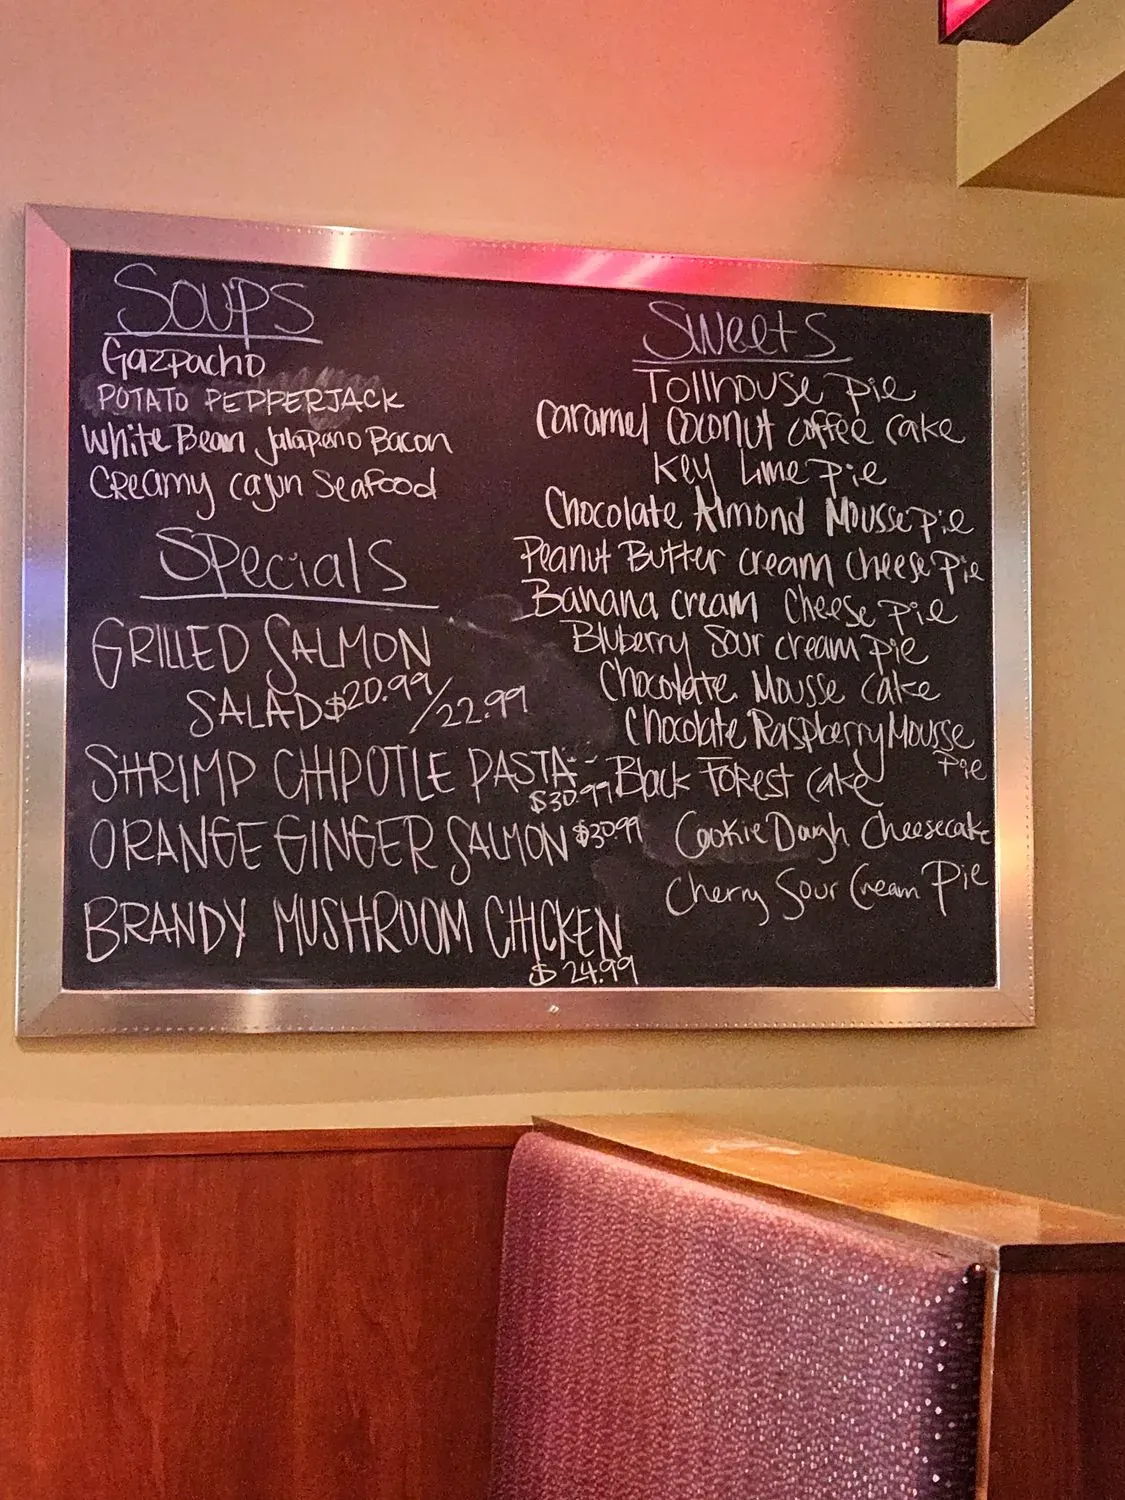 Soups
Gazpacho
POTATO PEPPERJACK
White Bean Jalapeno Bacon
Creamy cajun Seafood
Specials
GRILLED SALMON
SALAD $20.99/22.99
SHRIMP CHIPOTLE PASTA
$30.99
ORANGE GINGER SALMON $30.99
BRANDY MUSHROOM CHICKEN
$24.99
Sweets
Tollhouse Pie
Caramel Coconut coffee cake
Key Lime Pie
Chocolate Almond Mousse Pie
Peanut Butter cream cheese Pie
Banana cream Cheese Pie
Bluberry Sour cream Pie
Chocolate Mousse Cake
Chocolate Raspberry Mousse
Pie
Black Forest Cake
Cookie Dough Cheesecake
Cherry Sour Cream Pie